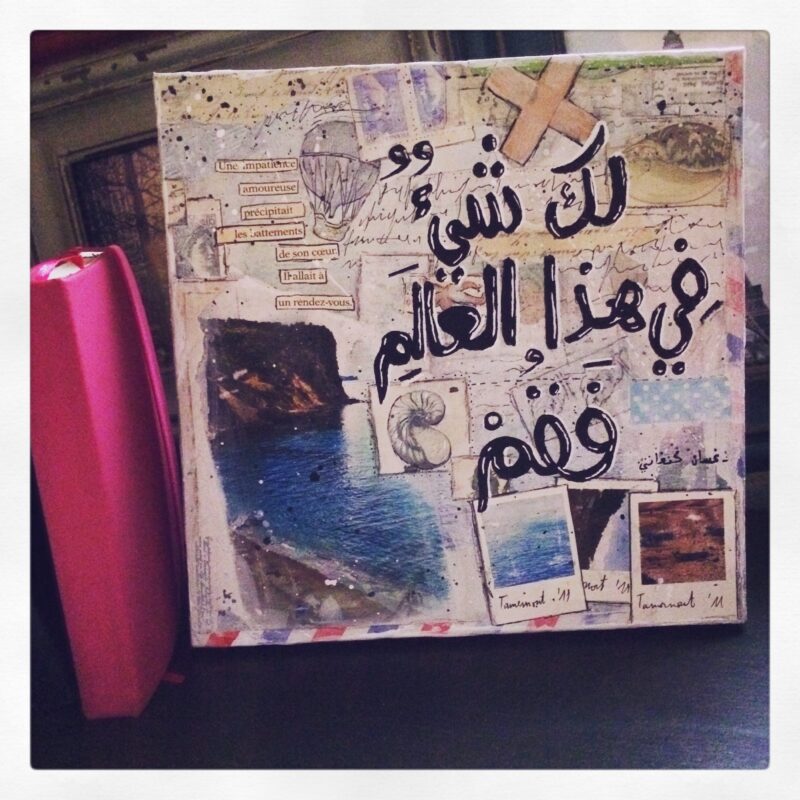 Une impatience
amoureuse
précipitait
les battements
de son cœur.
Il allait à
un rendez-vous.
لكَ شيءٌ
فِي هَذا العالَمِ
فَقُمْ
- غسان كنفاني
'11
'11
'11